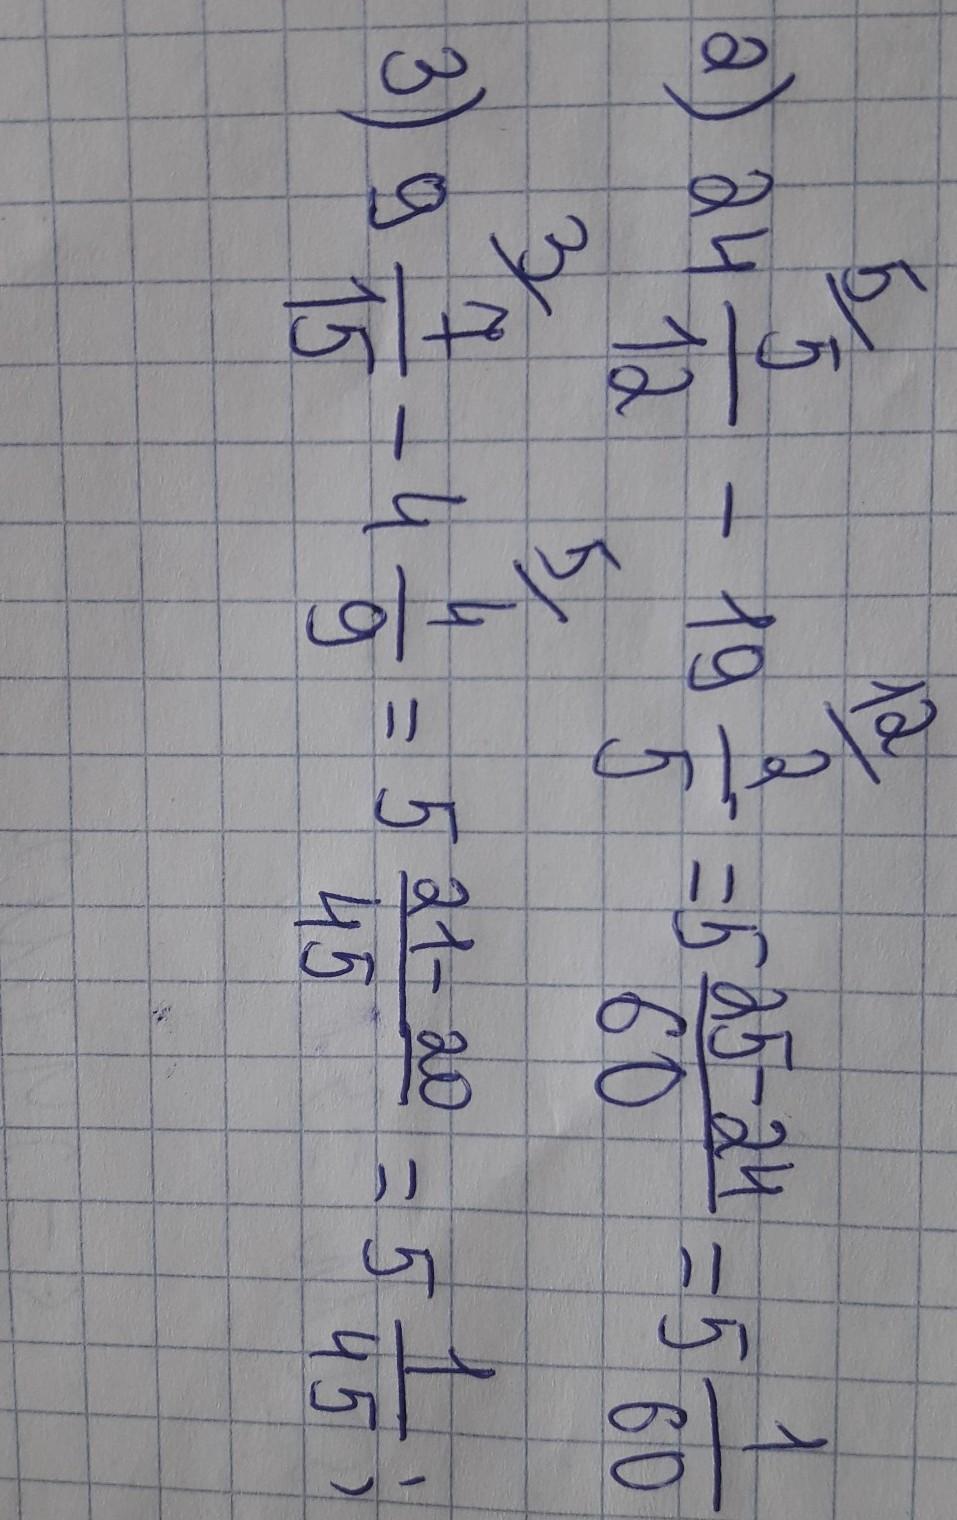 2) 24 5/12 - 19 2/5 = 5 25-24/60 = 5 1/60
3) 9 7/15 - 4 4/9 = 5 21-20/45 = 5 1/45 ;
5/ 12/
3/ 5/